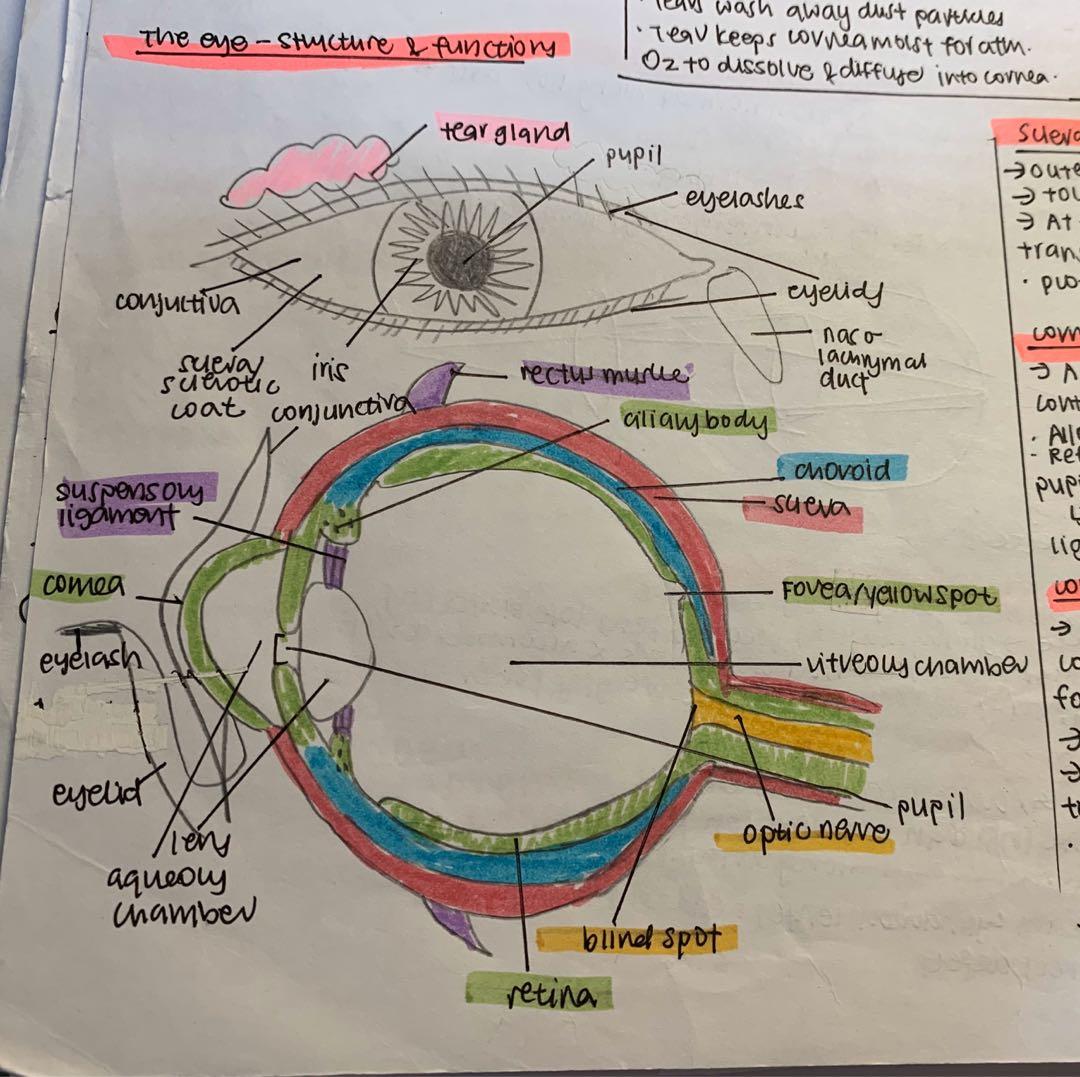 The eye - structure & functions
Tears wash away dust particles
· Tear keeps cornea moist for atm.
O2 to dissolve & diffuse into cornea.
tear gland
pupil
eyelashes
eyelids
naso-
lachrymal
duct
conjuctiva
sclera/
sclerotic
coat
iris
rectus muscle
conjunctiva
ciliary body
choroid
sclera
suspensory
ligament
cornea
Fovea/yellow spot
eyelash
vitreous chamber
eyelid
pupil
lens
optic nerve
aqueous
chamber
blind spot
retina
Sclera
→ oute
→ tou
→ At
tran
· pro
corn
→ A
cont
· All
- Ref
pup
lig
co
→
co
fo
→
→
t